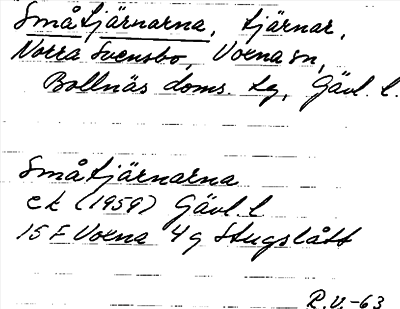 Småtjärnarna, tjärnar,
Norra Svensbo, Voxna sn,
Bollnäs doms. tg, Gävl. l.
Småtjärnarna
ek (1959) Gävl. l
15 F Voxna 4 g Stugslått
R.V.-63